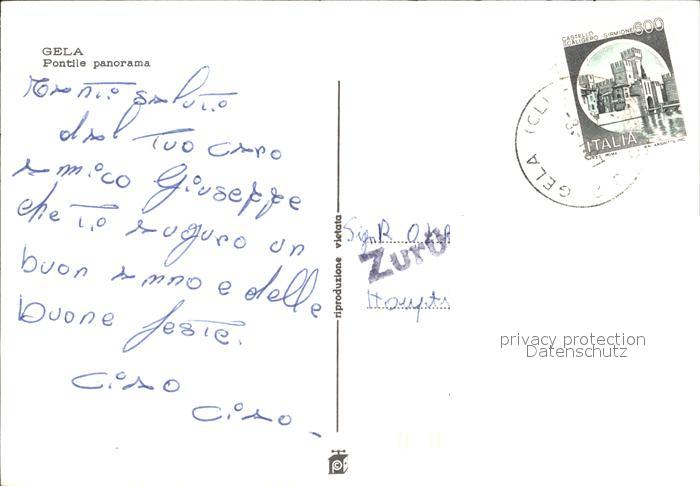 GELA
Pontile panorama
Tanti saluti
dal Tuo caro
amico Giuseppe
che ti auguro un
buon anno e delle
buone feste.
Ciao
Ciao -
riproduzione vietata
CASTELLO
SCALIGERO SIRMIONE 600
ITALIA
GELA (CL)
Sign R
Zurü
Haupts
privacy protection
Datenschutz